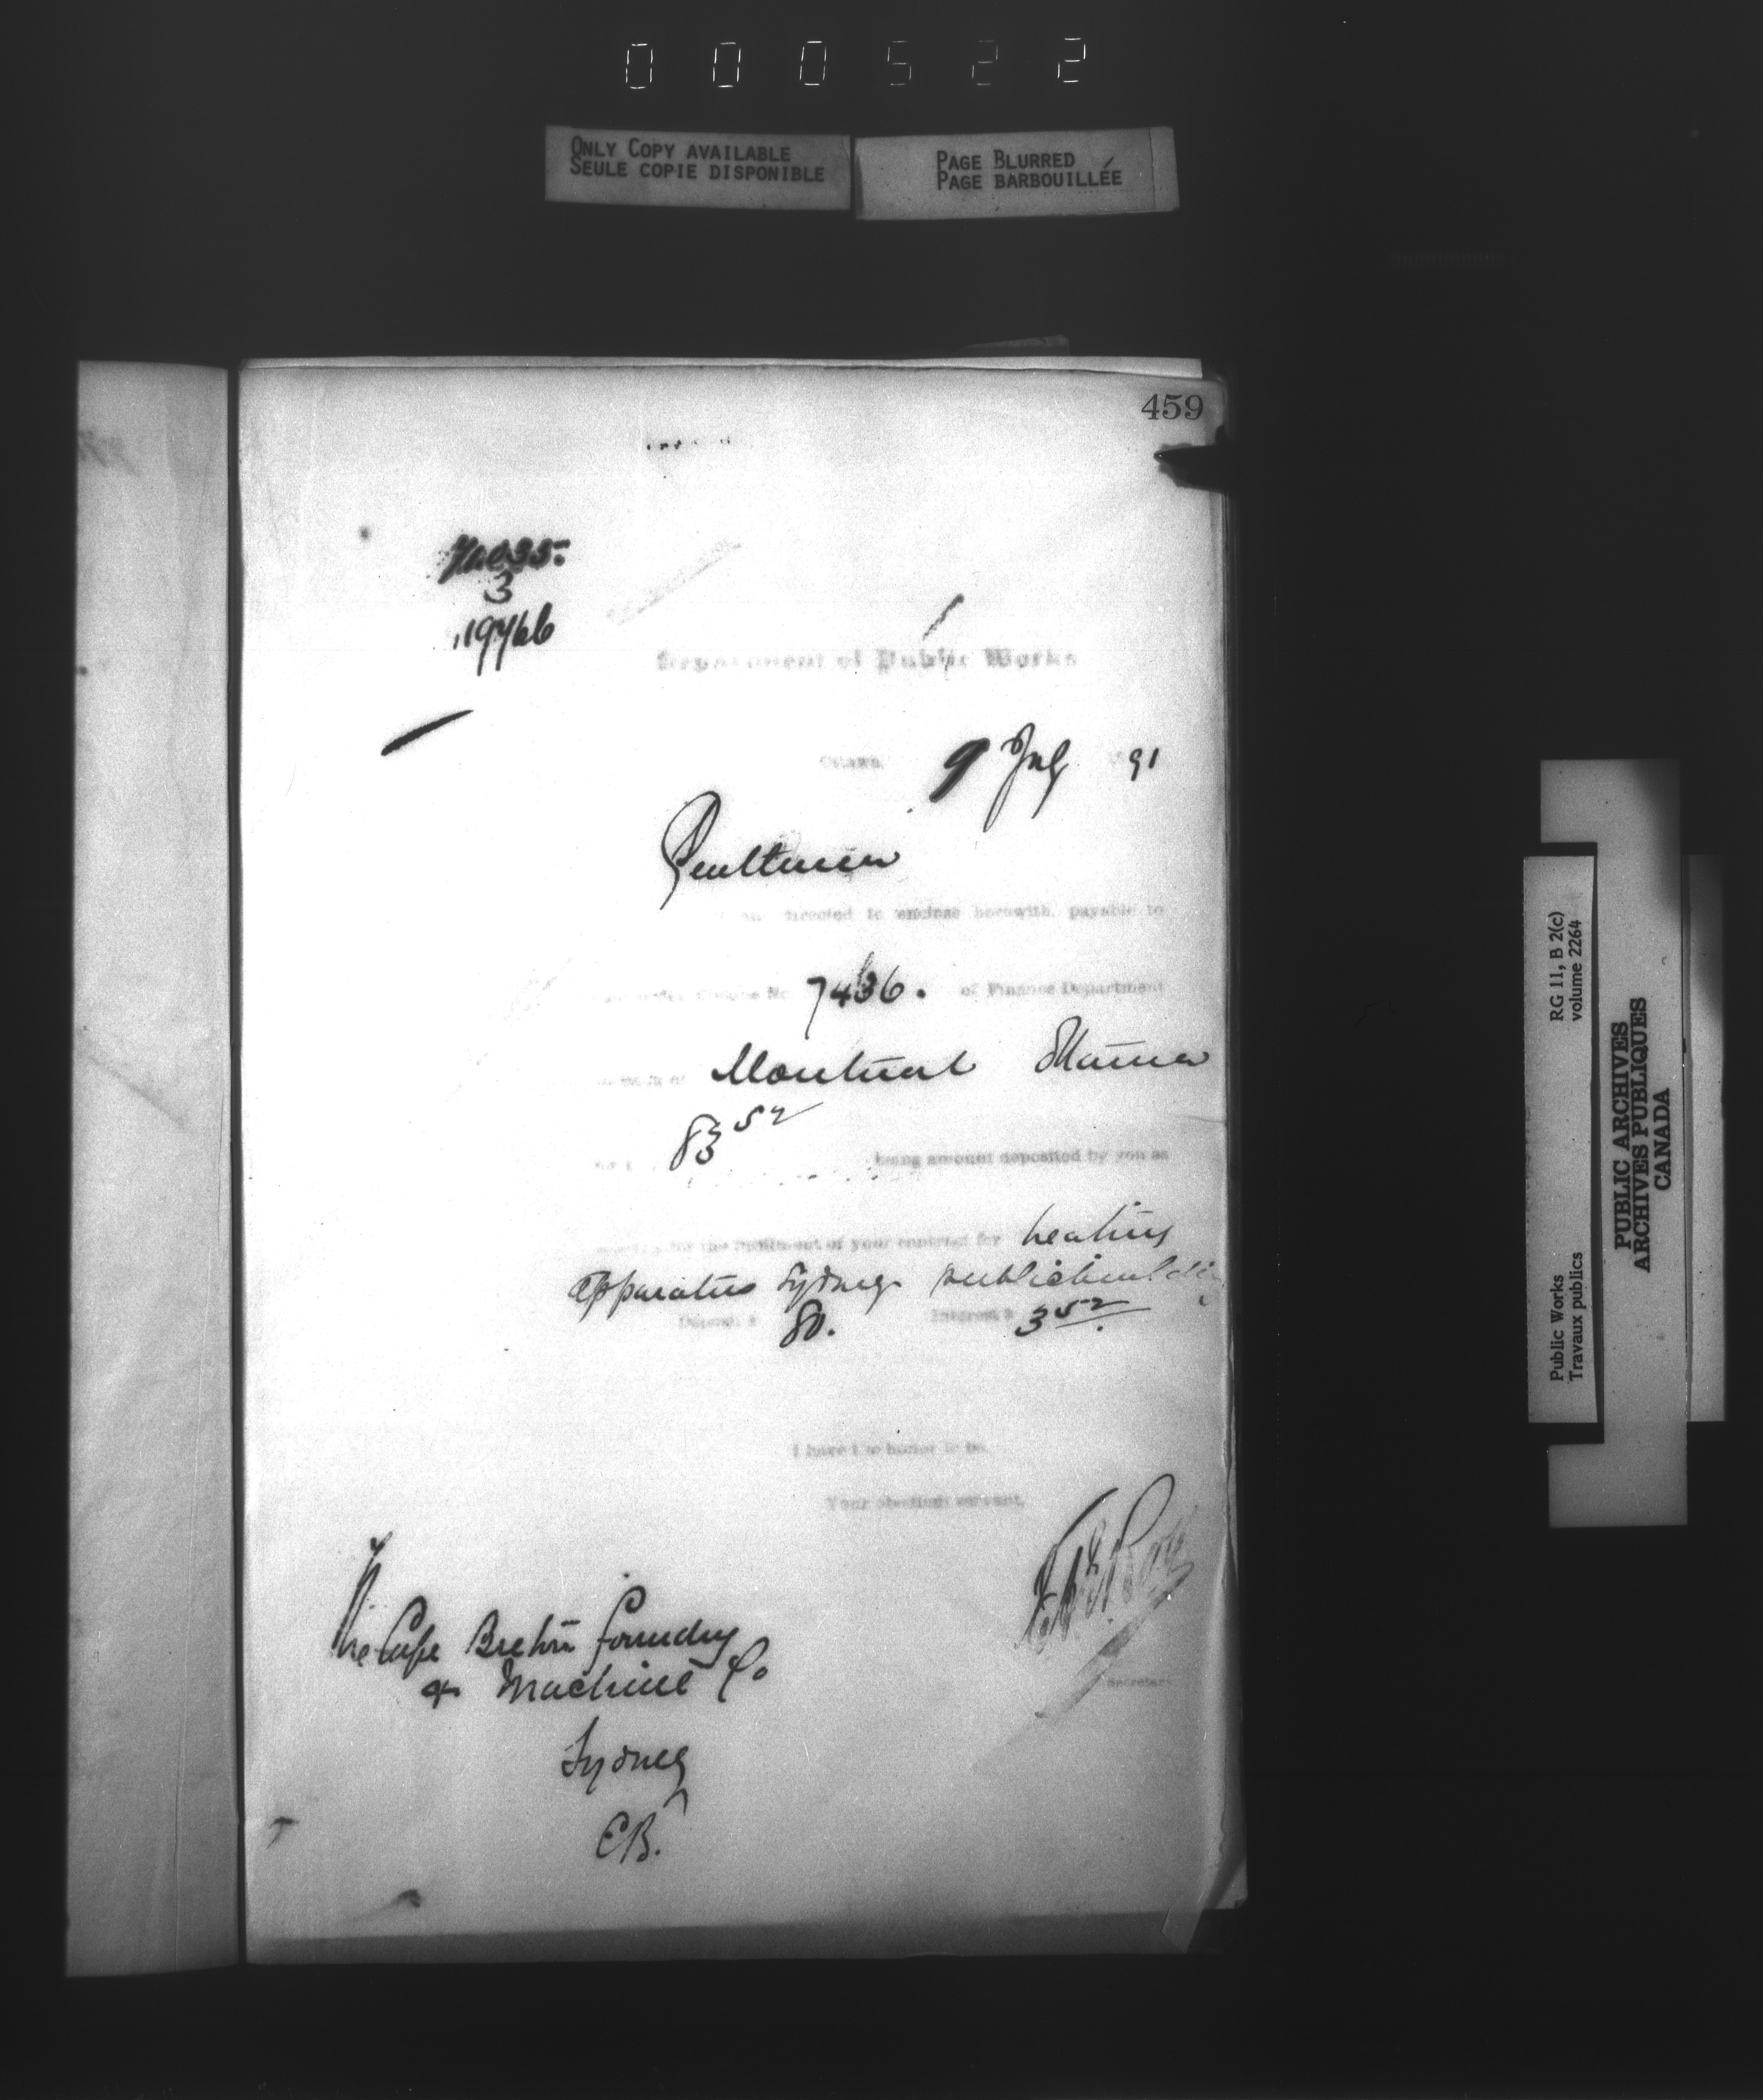 000522
ONLY COPY AVAILABLE
SEULE COPIE DISPONIBLE
PAGE BLURRED
PAGE BARBOUILLÉE
459
3
19766
Department of Public Works
Ottawa, 9 July 91
Gentlemen
directed to enclose herewith, payable to
Cheque No 7436. of Finance Department
Montreal
83 52
being amount deposited by you as
for the fulfilment of your contract for heating
apparatus Sydney public building
Deposit $ 80. Interest $ 3 52
I have the honor to be,
Your obedient servant,
Secretary
The Cape Breton Foundry
& Machine Co
Sydney
C.B.
Public Works
Travaux publics
RG 11, B 2(c)
volume 2264
PUBLIC ARCHIVES
ARCHIVES PUBLIQUES
CANADA